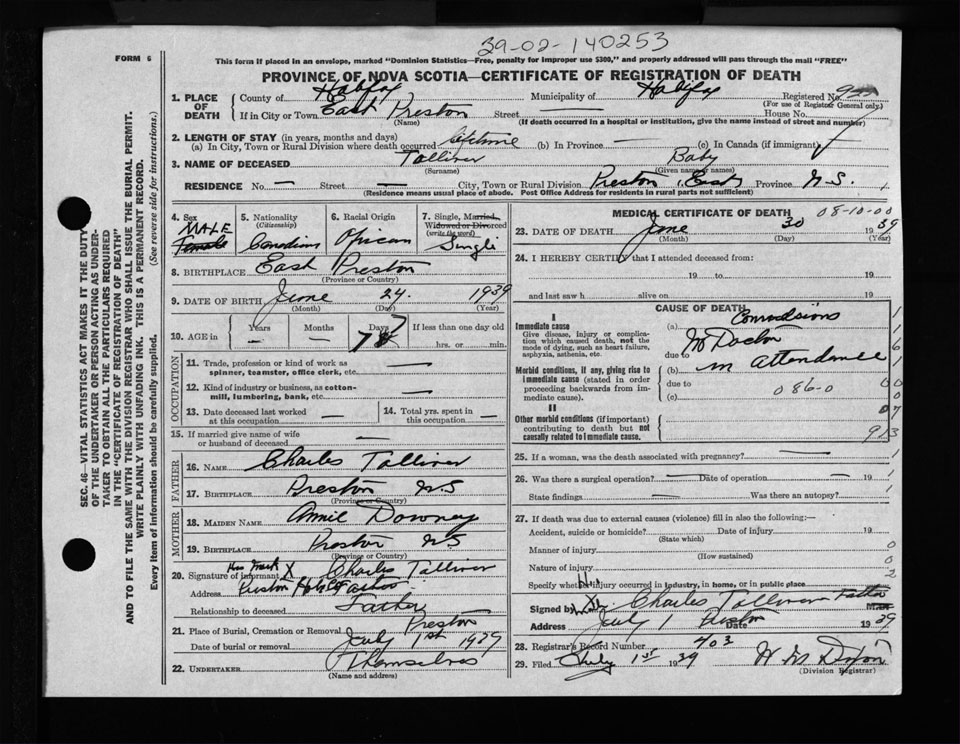 39-02-140253
FORM 6
This form if placed in an envelope, marked "Dominion Statistics—Free, penalty for improper use $300," and properly addressed will pass through the mail "FREE"
PROVINCE OF NOVA SCOTIA—CERTIFICATE OF REGISTRATION OF DEATH
1. PLACE OF DEATH County of Halifax Municipality of Halifax Registered No.
(For use of Registrar General only)
If in City or Town East Preston Street — House No.
(Name) (If death occurred in a hospital or institution, give the name instead of street and number)
2. LENGTH OF STAY (in years, months and days)
(a) In City, Town or Rural Division where death occurred lifetime (b) In Province — (c) In Canada (if immigrant)
3. NAME OF DECEASED Tolliver Baby
(Surname) (Given name or names)
RESIDENCE No. — Street — City, Town or Rural Division Preston East Province N.S.
(Residence means usual place of abode. Post Office Address for residents in rural parts not sufficient)
SEC. 46—VITAL STATISTICS ACT MAKES IT THE DUTY
OF THE UNDERTAKER OR PERSON ACTING AS UNDER-
TAKER TO OBTAIN ALL THE PARTICULARS REQUIRED
IN THE "CERTIFICATE OF REGISTRATION OF DEATH"
AND TO FILE THE SAME WITH THE DIVISION REGISTRAR WHO SHALL ISSUE THE BURIAL PERMIT.
WRITE PLAINLY WITH UNFADING INK. THIS IS A PERMANENT RECORD.
Every item of information should be carefully supplied. (See reverse side for instructions.)
4. Sex 5. Nationality 6. Racial Origin 7. Single, Married,
(Citizenship) Widowed or Divorced
(write the word)
MALE
Female Canadian African Single
8. BIRTHPLACE East Preston
(Province or Country)
9. DATE OF BIRTH June 24 1939
(Month) (Day) (Year)
10. AGE in Years Months Days If less than one day old
— — 7 hrs. or min.
OCCUPATION
11. Trade, profession or kind of work as
spinner, teamster, office clerk, etc. —
12. Kind of industry or business, as cotton-
mill, lumbering, bank, etc. —
13. Date deceased last worked
at this occupation —
14. Total yrs. spent in
this occupation —
15. If married give name of wife
or husband of deceased —
FATHER
16. NAME Charles Tolliver
17. BIRTHPLACE Preston NS
(Province or Country)
MOTHER
18. MAIDEN NAME Annie Downey
19. BIRTHPLACE Preston NS
(Province or Country)
20. Signature of informant His Mark X Charles Tolliver
Address Preston
Relationship to deceased Father
21. Place of Burial, Cremation or Removal Preston
Date of burial or removal July 1st 1939
22. UNDERTAKER Themselves
(Name and address)
MEDICAL CERTIFICATE OF DEATH 08-10-00
23. DATE OF DEATH June 30 1939
(Month) (Day) (Year)
24. I HEREBY CERTIFY that I attended deceased from:
19 to 19
and last saw h alive on 19
CAUSE OF DEATH
I
Immediate cause
Give disease, injury or complica-
tion which caused death, not the
mode of dying, such as heart failure,
asphyxia, asthenia, etc.
(a) Convulsions
No Doctor
due to
Morbid conditions, if any, giving rise to
immediate cause (stated in order
proceeding backwards from im-
mediate cause).
(b) in attendance
due to
(c) 086-0
II
Other morbid conditions (if important)
contributing to death but not
causally related to immediate cause.
25. If a woman, was the death associated with pregnancy? —
26. Was there a surgical operation? — Date of operation — 19
State findings — Was there an autopsy?
27. If death was due to external causes (violence) fill in also the following:—
Accident, suicide or homicide? Date of injury 19
(State which)
Manner of injury
(How sustained)
Nature of injury
Specify whether injury occurred in industry, in home, or in public place
Signed by X Charles Tolliver Father
Address July 1 Preston Date 1939
28. Registrar's Record Number 403
29. Filed July 1st 1939 W M Dixon
(Division Registrar)